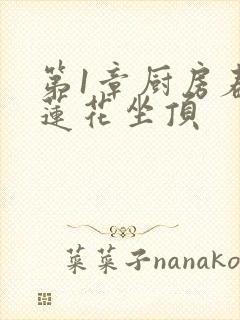 第1章厨房
蓮花坐頂
菜菜子nanako